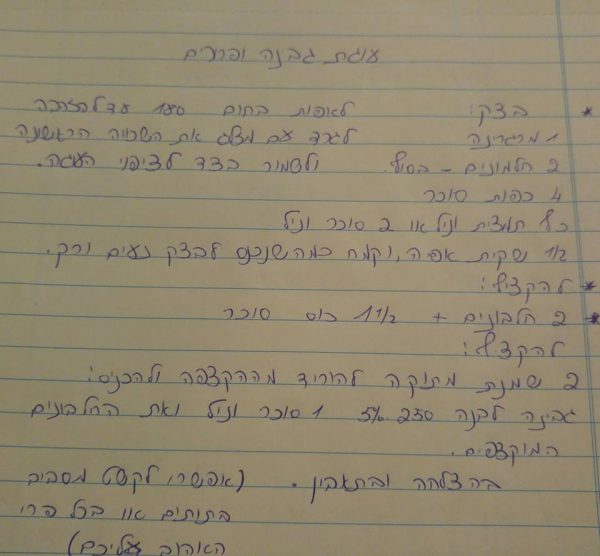 עוגת גבנה
* בצק: לאפות בחום 180 עד להזהבה
1 מרגרינה לגרד עם מצלג את השכבה הראשונה
2 חלמונים - בסוף. ולשמור בצד לציפוי העוגה.
4 כפות סוכר
כף תמצית וניל או 2 סוכר וניל
1/2 שקית אפיה, וקמח כמה שנכנס לבצק נעים ורך.
* להקציף:
* 2 חלבונים + 1 1/2 כוס סוכר
להקציף:
2 שמנת מתוקה להוריד מההקצפה ולהכניס:
גבינה לבנה 250 5% 1 סוכר וניל ואת החלבונים
המוקצפים.
בהצלחה ובתאבון. (אפשרי לקשט מסביב
בתותים או בכל פרי
האהוב עליכם)